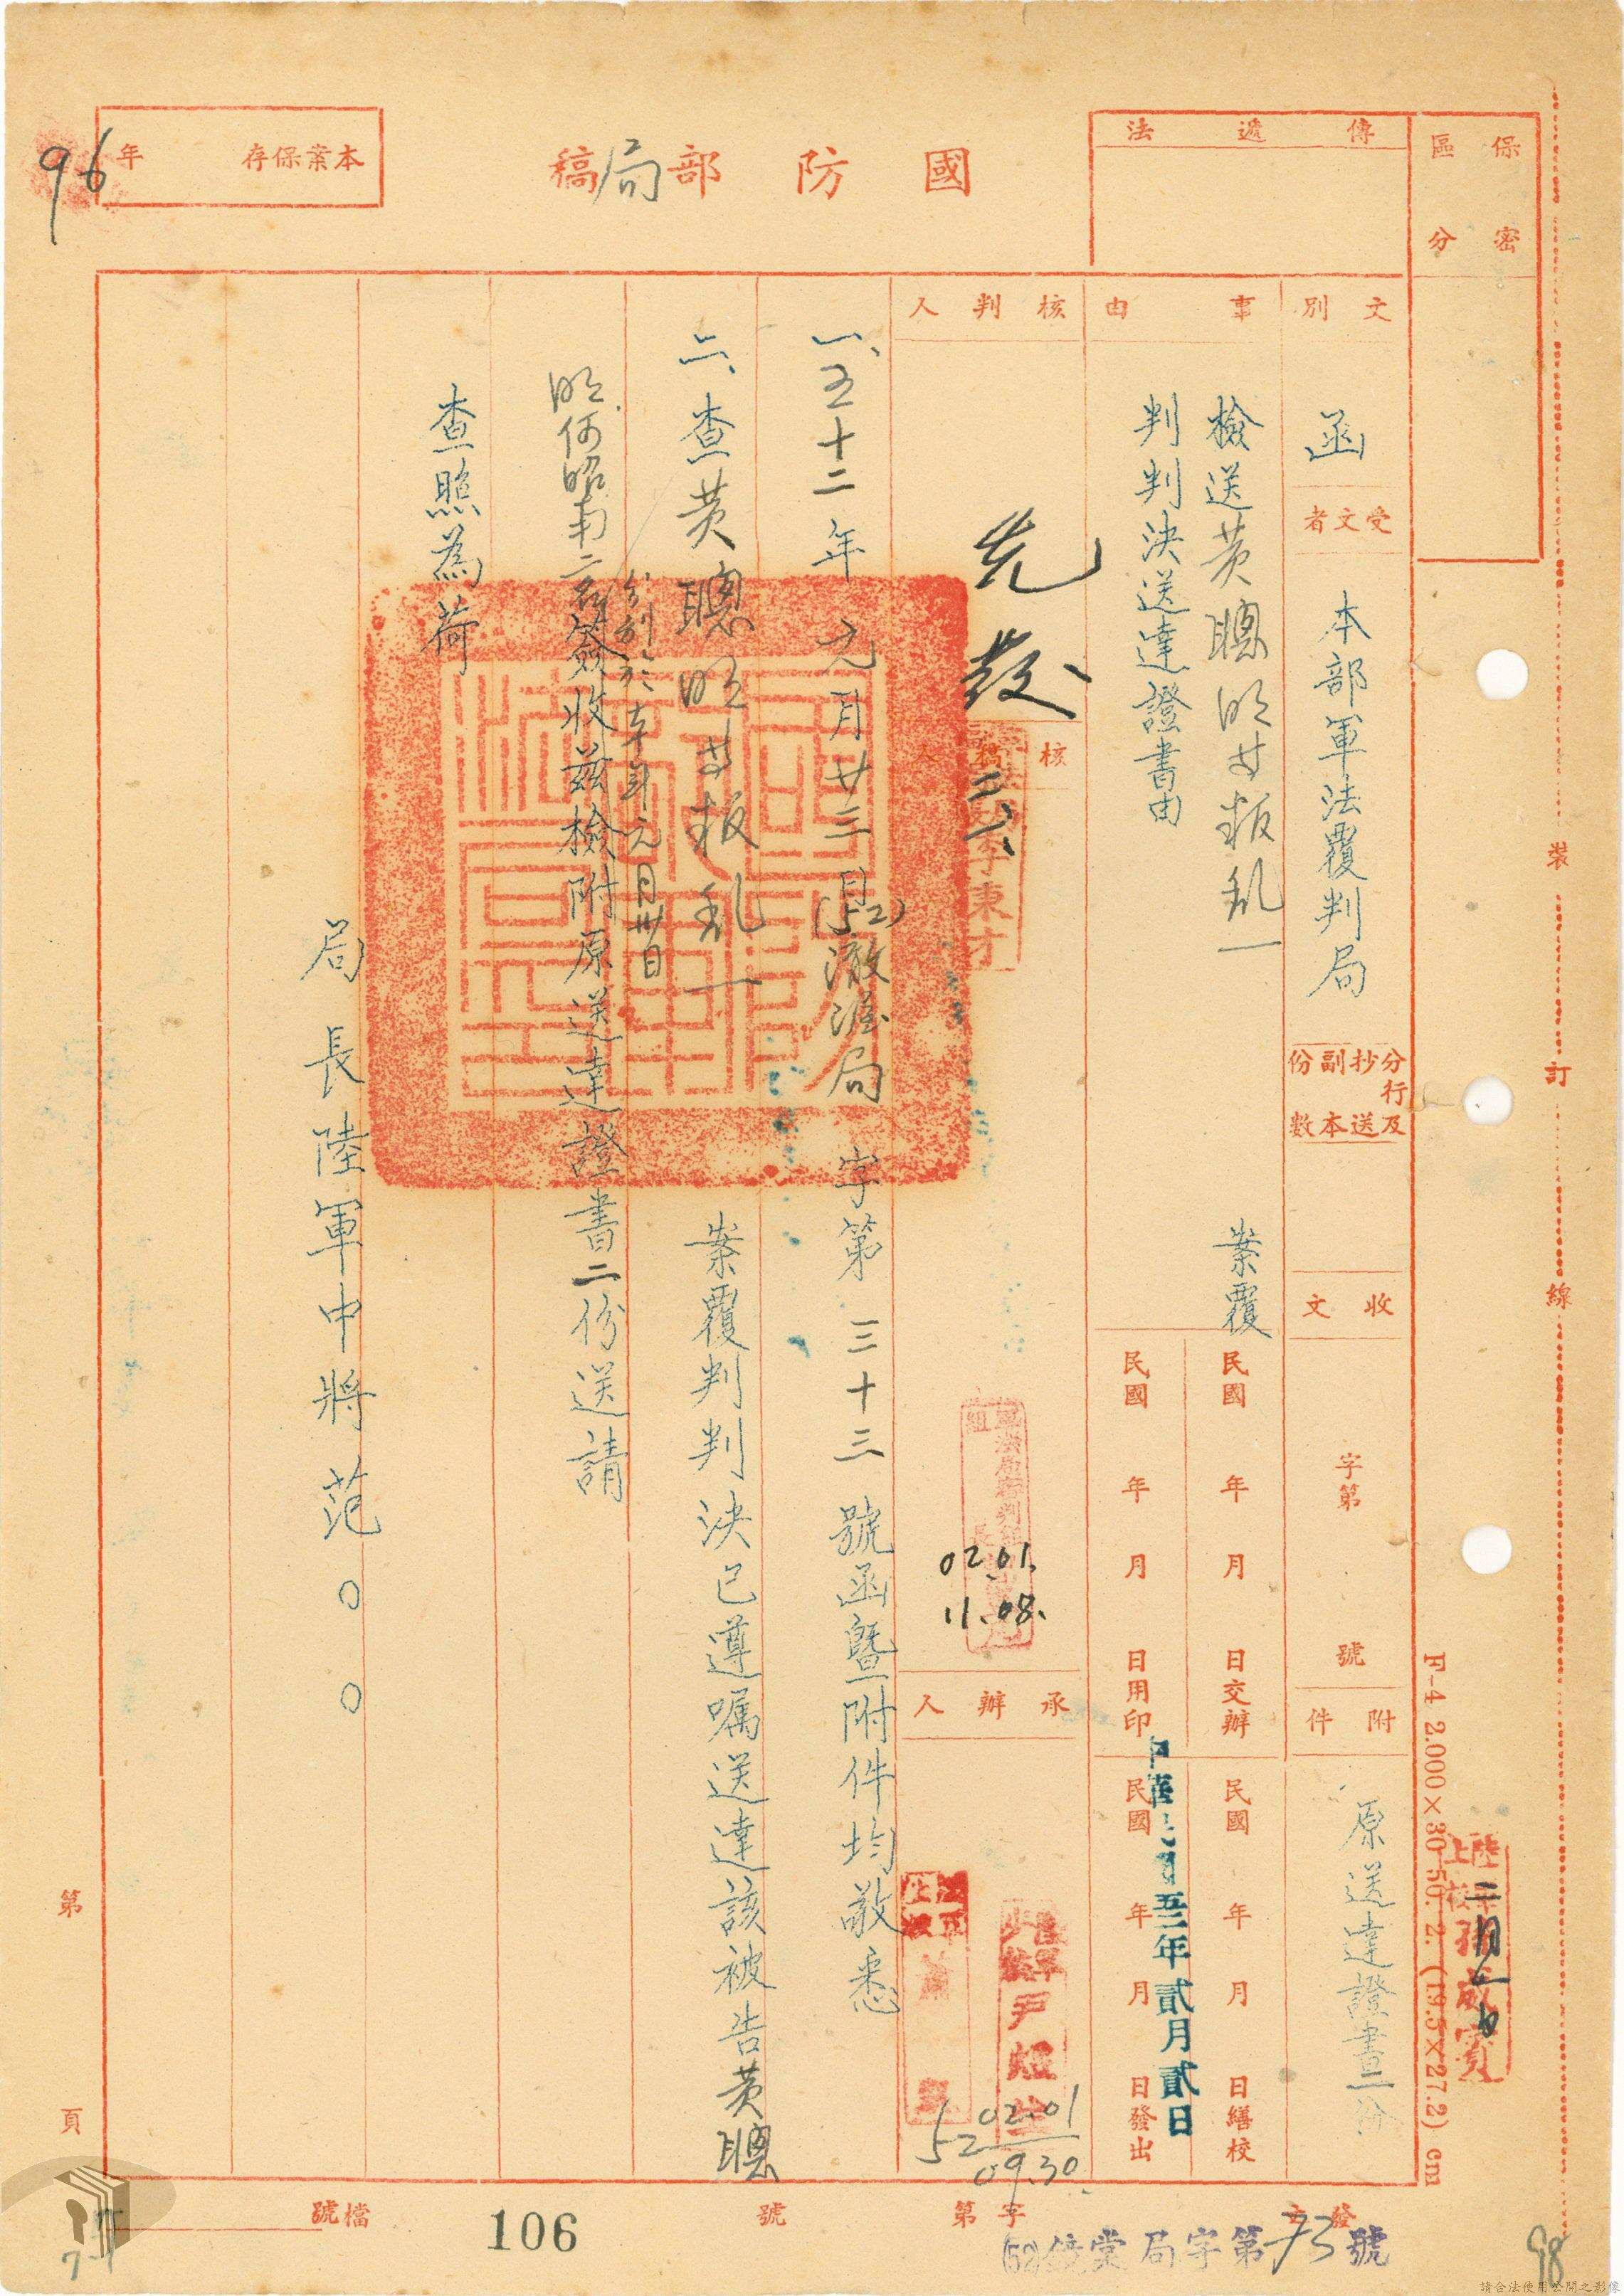 保密
區分
傳遞法
國防部局稿
本案保存
年
96
文別
函
受文者
本部軍法覆判局
分行及抄送副本份數
收文
字第
號
附件
原送達證書二份
事由
檢送黃聰明等叛乱一案覆
判判決送達證書由
民國 年 月 日交辦
民國 年 月 日繕校
民國 年 月 日用印
民國 年 月 日發出
中華民國五二年貳月貳日
核判人
先發
核稿人
李東才
02.01.
11.08.
承辦人
52 02.01
09.30
一、五十二年元月廿三日(52)澈渥局字第三十三號函暨附件均敬悉
二、查黃聰明等叛乱一案覆判判決已遵嘱送達該被告黃聰
分別於本年元月卅日
明何昭南二名簽收茲檢附原送達證書二份送請
查照為荷
局長陸軍中將范○○
裝
訂
線
F-4 2.000×30 50. 2. (19.5×27.2) cm
第
頁
發文
字第
號
局字第73號
檔號
106
98
請合法使用公開之影像